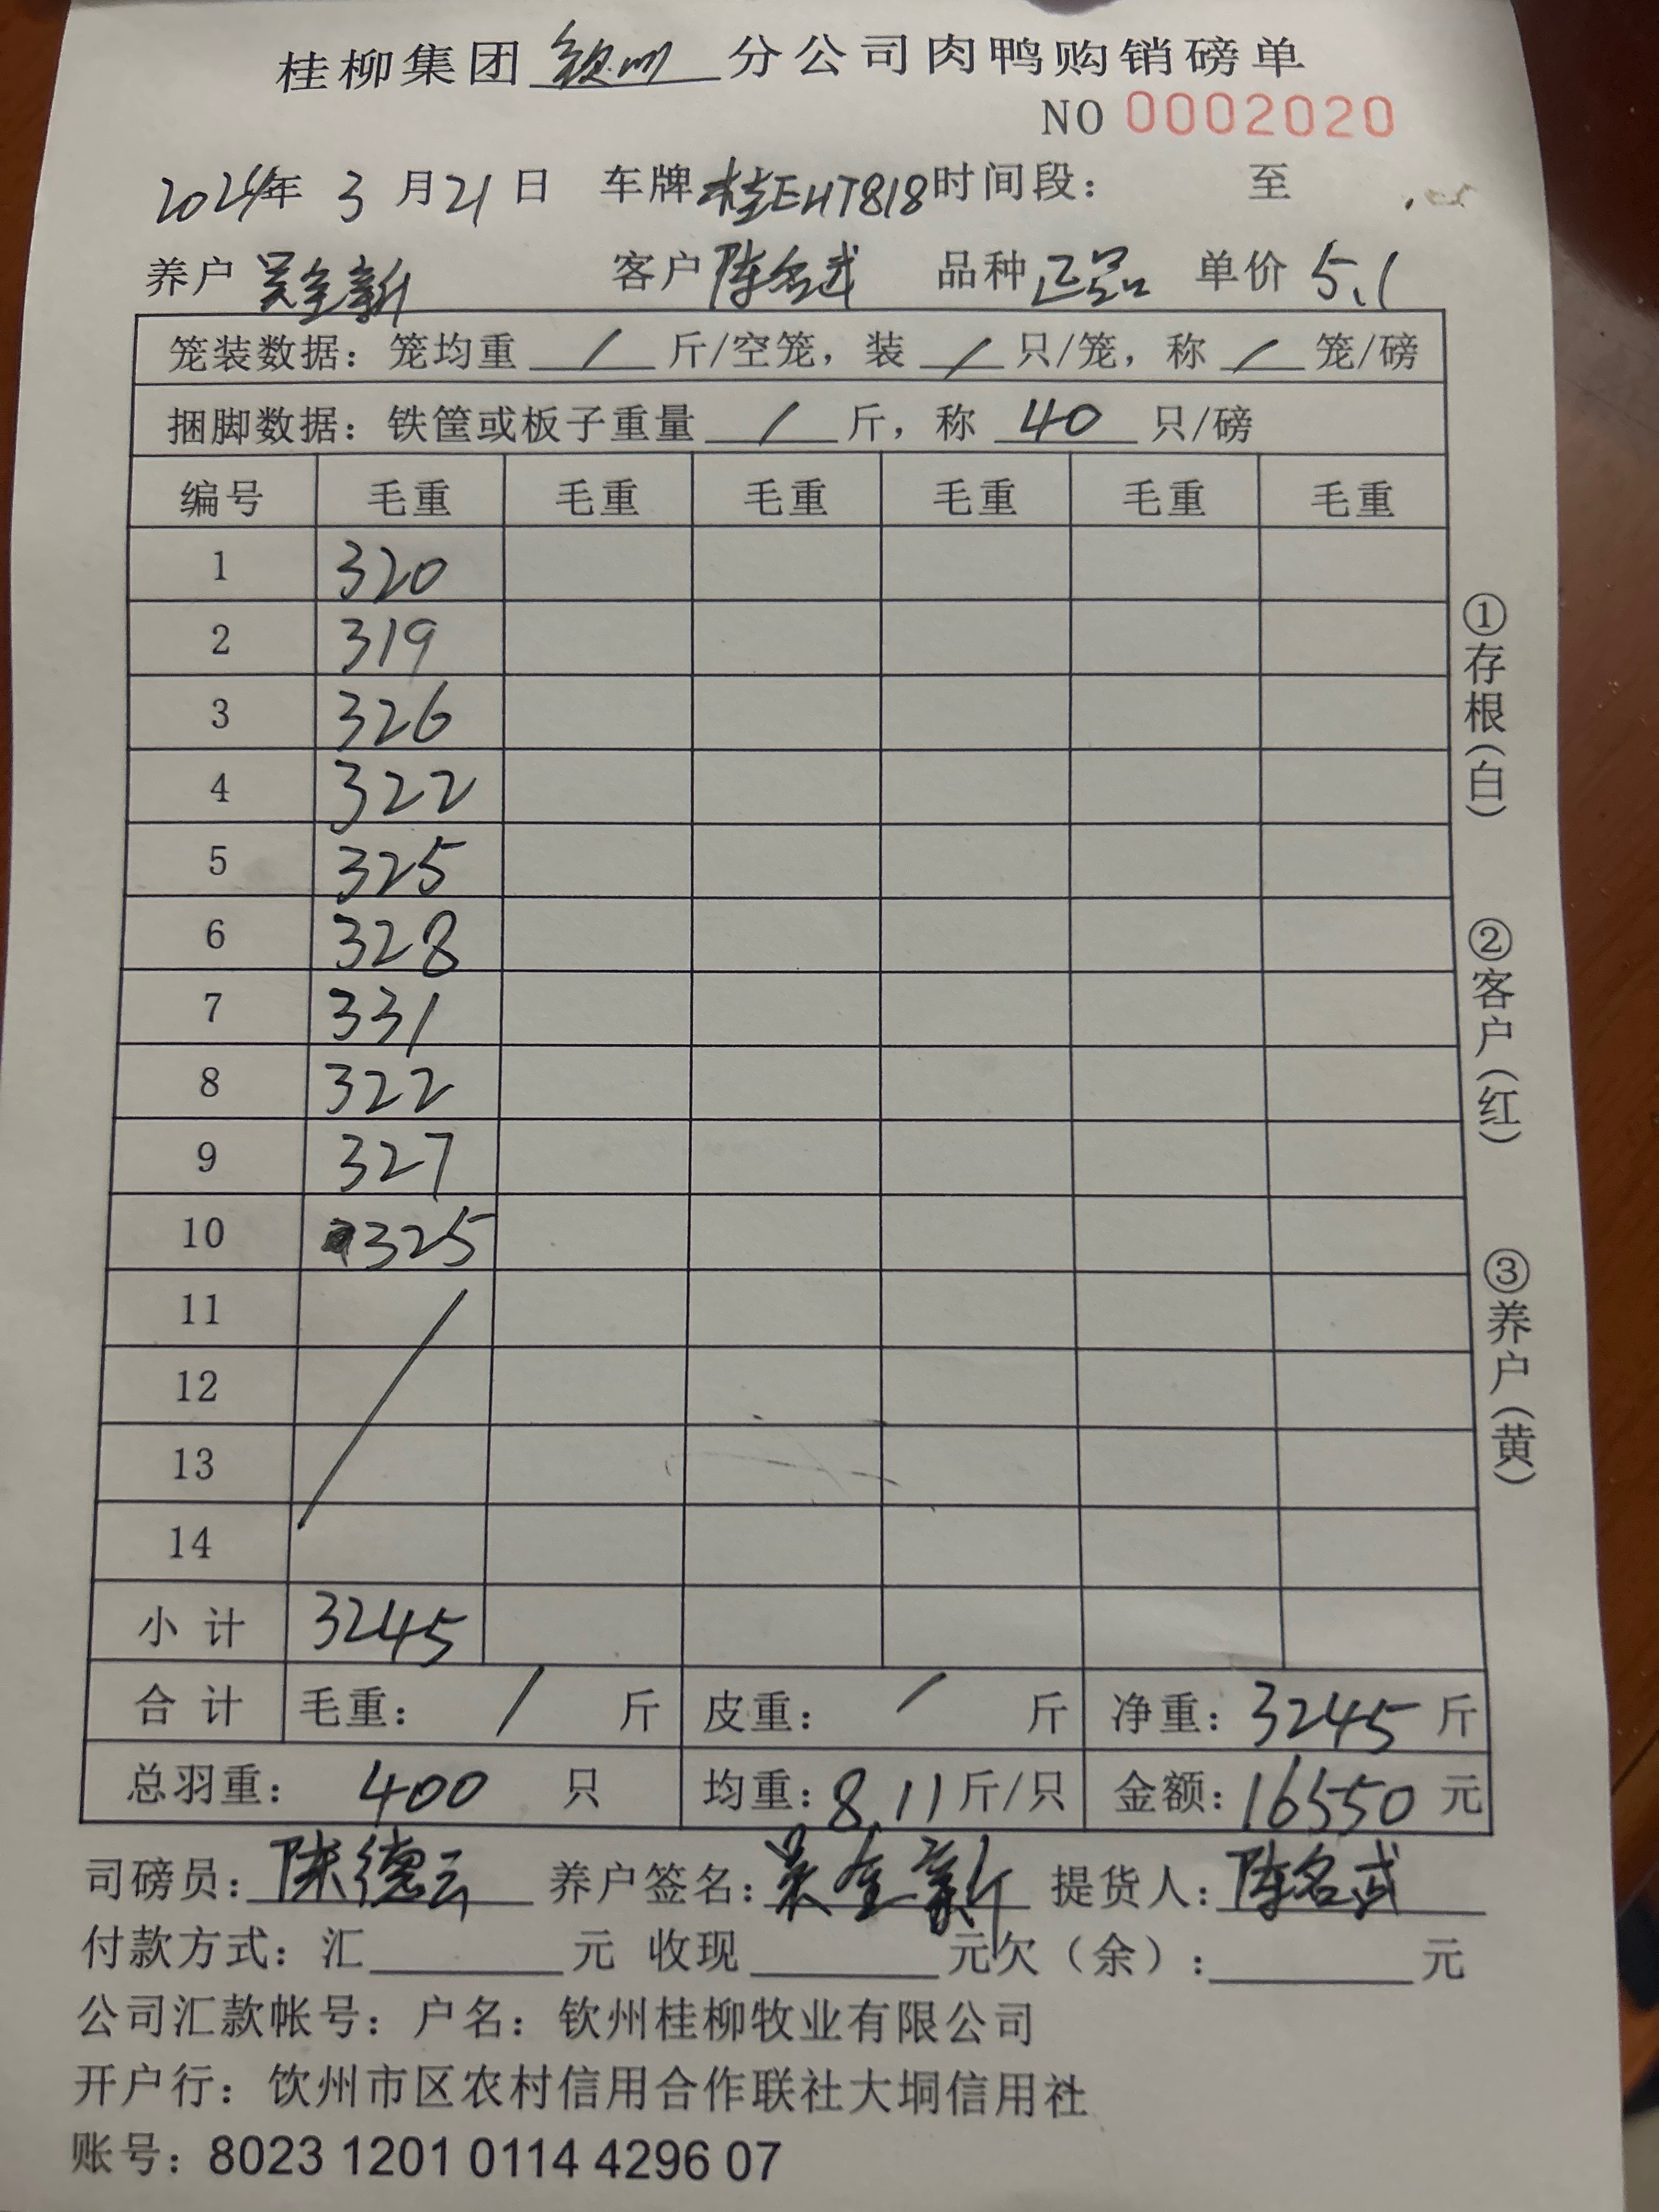 桂柳集团 钦州 分公司肉鸭购销磅单
NO 0002020
2024年 3 月 21 日 车牌 桂EHT818 时间段： 至
养户 吴全新 客户 陈名武 品种 正品 单价 5.1
笼装数据：笼均重 / 斤/空笼，装 / 只/笼，称 / 笼/磅
捆脚数据：铁筐或板子重量 / 斤，称 40 只/磅
编号 毛重 毛重 毛重 毛重 毛重 毛重
1 320
2 319
3 326
4 322
5 325
6 328
7 331
8 322
9 327
10 325
11
12
13
14
小计 3245
合计 毛重： / 斤 皮重： / 斤 净重：3245 斤
总羽重： 400 只 均重：8.11 斤/只 金额：16550 元
司磅员：陈德云 养户签名：吴全新 提货人：陈名武
付款方式：汇 元 收现 元欠（余）： 元
公司汇款帐号：户名：钦州桂柳牧业有限公司
开户行：饮州市区农村信用合作联社大垌信用社
账号：8023 1201 0114 4296 07
①存根（白）
②客户（红）
③养户（黄）